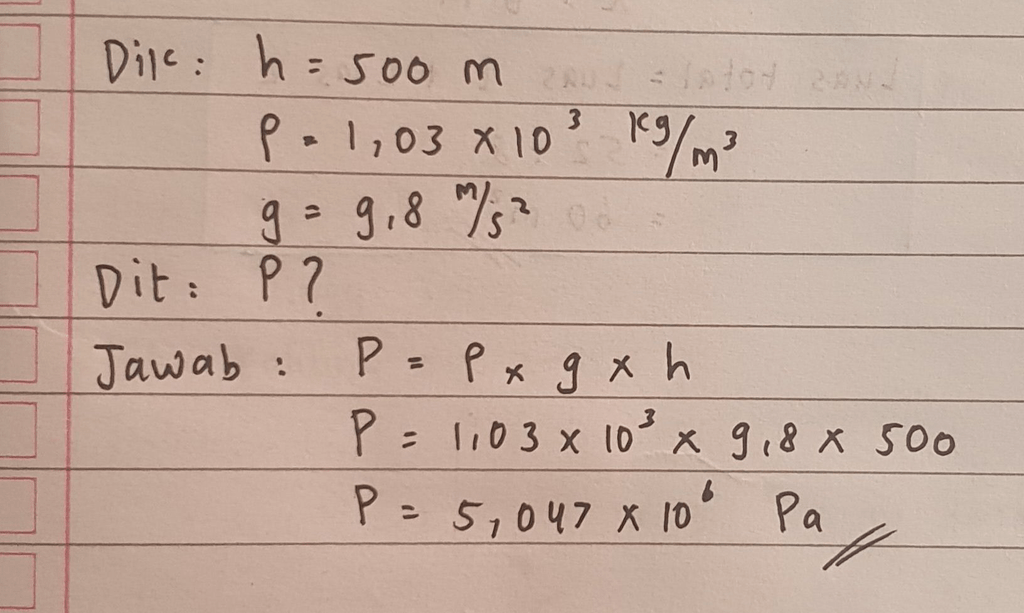 Dik : h = 500 m
ρ = 1,03 × 10³ kg/m³
g = 9,8 m/s²
Dit : P ?
Jawab : P = ρ × g × h
P = 1,03 × 10³ × 9,8 × 500
P = 5,047 × 10⁶ Pa